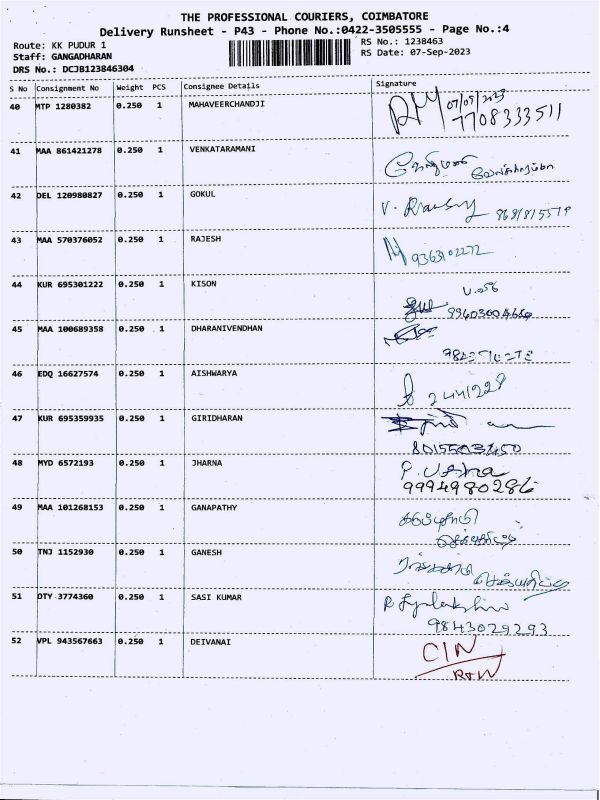 THE PROFESSIONAL COURIERS, COIMBATORE
Delivery Runsheet - P43 - Phone No.:0422-3505555 - Page No.:4
Route: KK PUDUR 1
RS No.: 1238463
Staff: GANGADHARAN
RS Date: 07-Sep-2023
DRS No.: DCJB123846304
S No Consignment No Weight PCS Consignee Details Signature
40 MTP 1280382 0.250 1 MAHAVEERCHANDJI 07/09/2023
7708333511
41 MAA 861421278 0.250 1 VENKATARAMANI
42 DEL 120980827 0.250 1 GOKUL
43 MAA 570376052 0.250 1 RAJESH 9363102272
44 KUR 695301222 0.250 1 KISON
45 MAA 100689358 0.250 1 DHARANIVENDHAN
46 EDQ 16627574 0.250 1 AISHWARYA 2441228
47 KUR 695359935 0.250 1 GIRIDHARAN
8015503450
48 MYD 6572193 0.250 1 JHARNA P. Usha
9994980286
49 MAA 101268153 0.250 1 GANAPATHY
50 TNJ 1152930 0.250 1 GANESH
51 OTY 3774360 0.250 1 SASI KUMAR
9843029293
52 VPL 943567663 0.250 1 DEIVANAI C/N